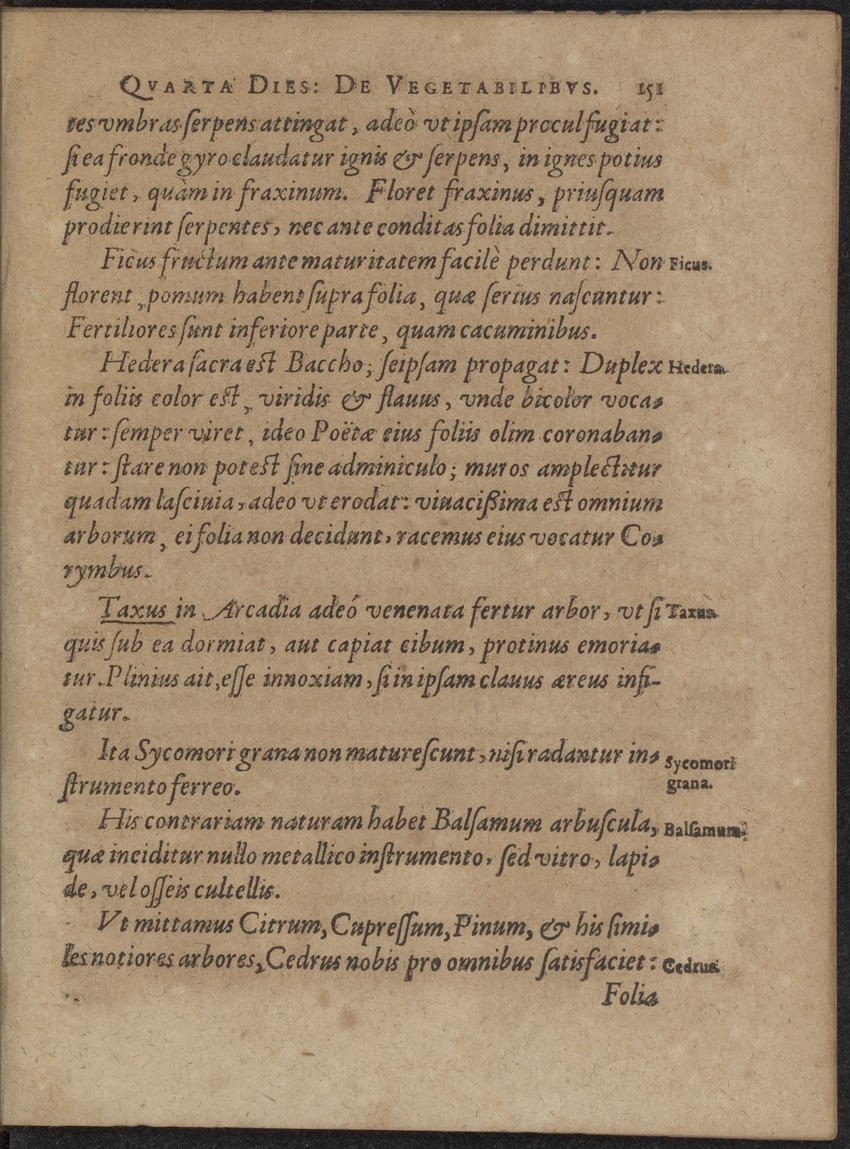 QVARTA DIES: DE VEGETABILIBVS. 151
tes vmbras serpens attingat, adeò vt ipsam procul fugiat:
si ea fronde gyro claudatur ignis & serpens, in ignes potius
fugiet, quàm in fraxinum. Floret fraxinus, priusquam
prodierint serpentes, nec ante conditas folia dimittit.
Ficus fructum ante maturitatem facilè perdunt: Non Ficus.
florent, pomum habent supra folia, quæ serius nascuntur:
Fertiliores sunt inferiore parte, quam cacuminibus.
Hedera sacra est Baccho; seipsam propagat: Duplex Hedera.
in foliis color est, viridis & flauus, vnde bicolor voca-
tur: semper viret, ideo Poëtæ eius foliis olim coronaban-
tur: stare non potest sine adminiculo; muros amplectitur
quadam lasciuia, adeo vt erodat: viuacißima est omnium
arborum, ei folia non decidunt, racemus eius vocatur Co-
rymbus.
Taxus in Arcadia adeó venenata fertur arbor, vt si Taxus.
quis sub ea dormiat, aut capiat cibum, protinus emoria-
tur. Plinius ait, esse innoxiam, si in ipsam clauus æreus infi-
gatur.
Ita Sycomori grana non maturescunt, nisi radantur in- Sycomori
strumento ferreo. grana.
His contrariam naturam habet Balsamum arbuscula, Balsamum.
quæ inciditur nullo metallico instrumento, sed vitro, lapi-
de, vel osseis cultellis.
Vt mittamus Citrum, Cupressum, Pinum, & his simi-
les notiores arbores, Cedrus nobis pro omnibus satisfaciet: Cedrus.
Folia